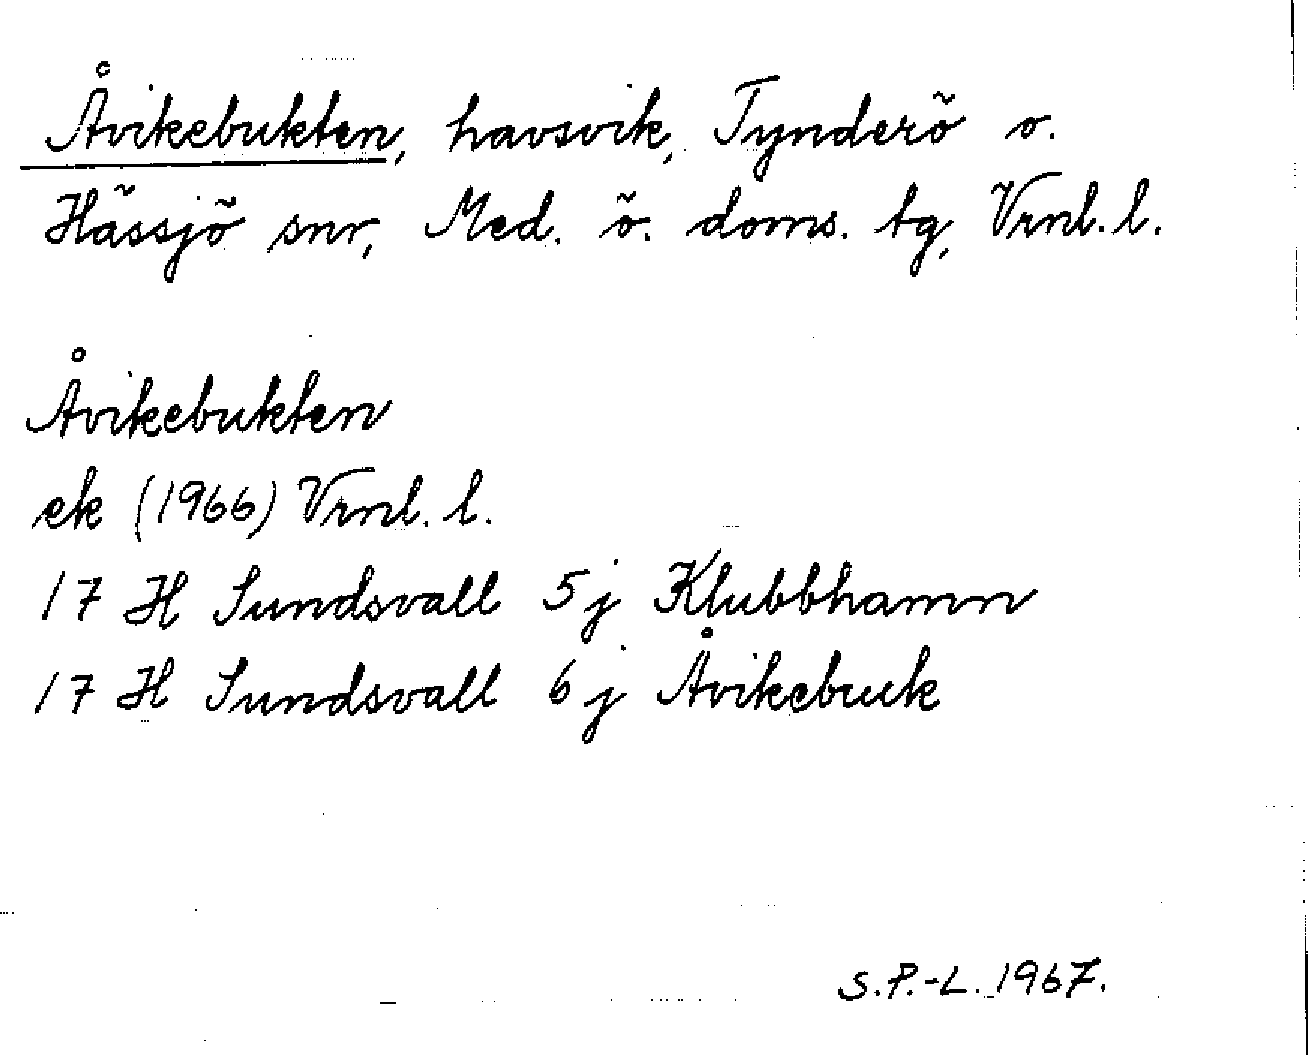 Åvikebukten, havsvik, Tynderö o.
Hässjö snr, Med. ö. doms. tg, Vrnl. l.
Åvikebukten
ek (1966) Vrnl. l.
17 H Sundsvall 5 j Klubbhamn
17 H Sundsvall 6 j Åvikebruk
S.P.-L. 1967.